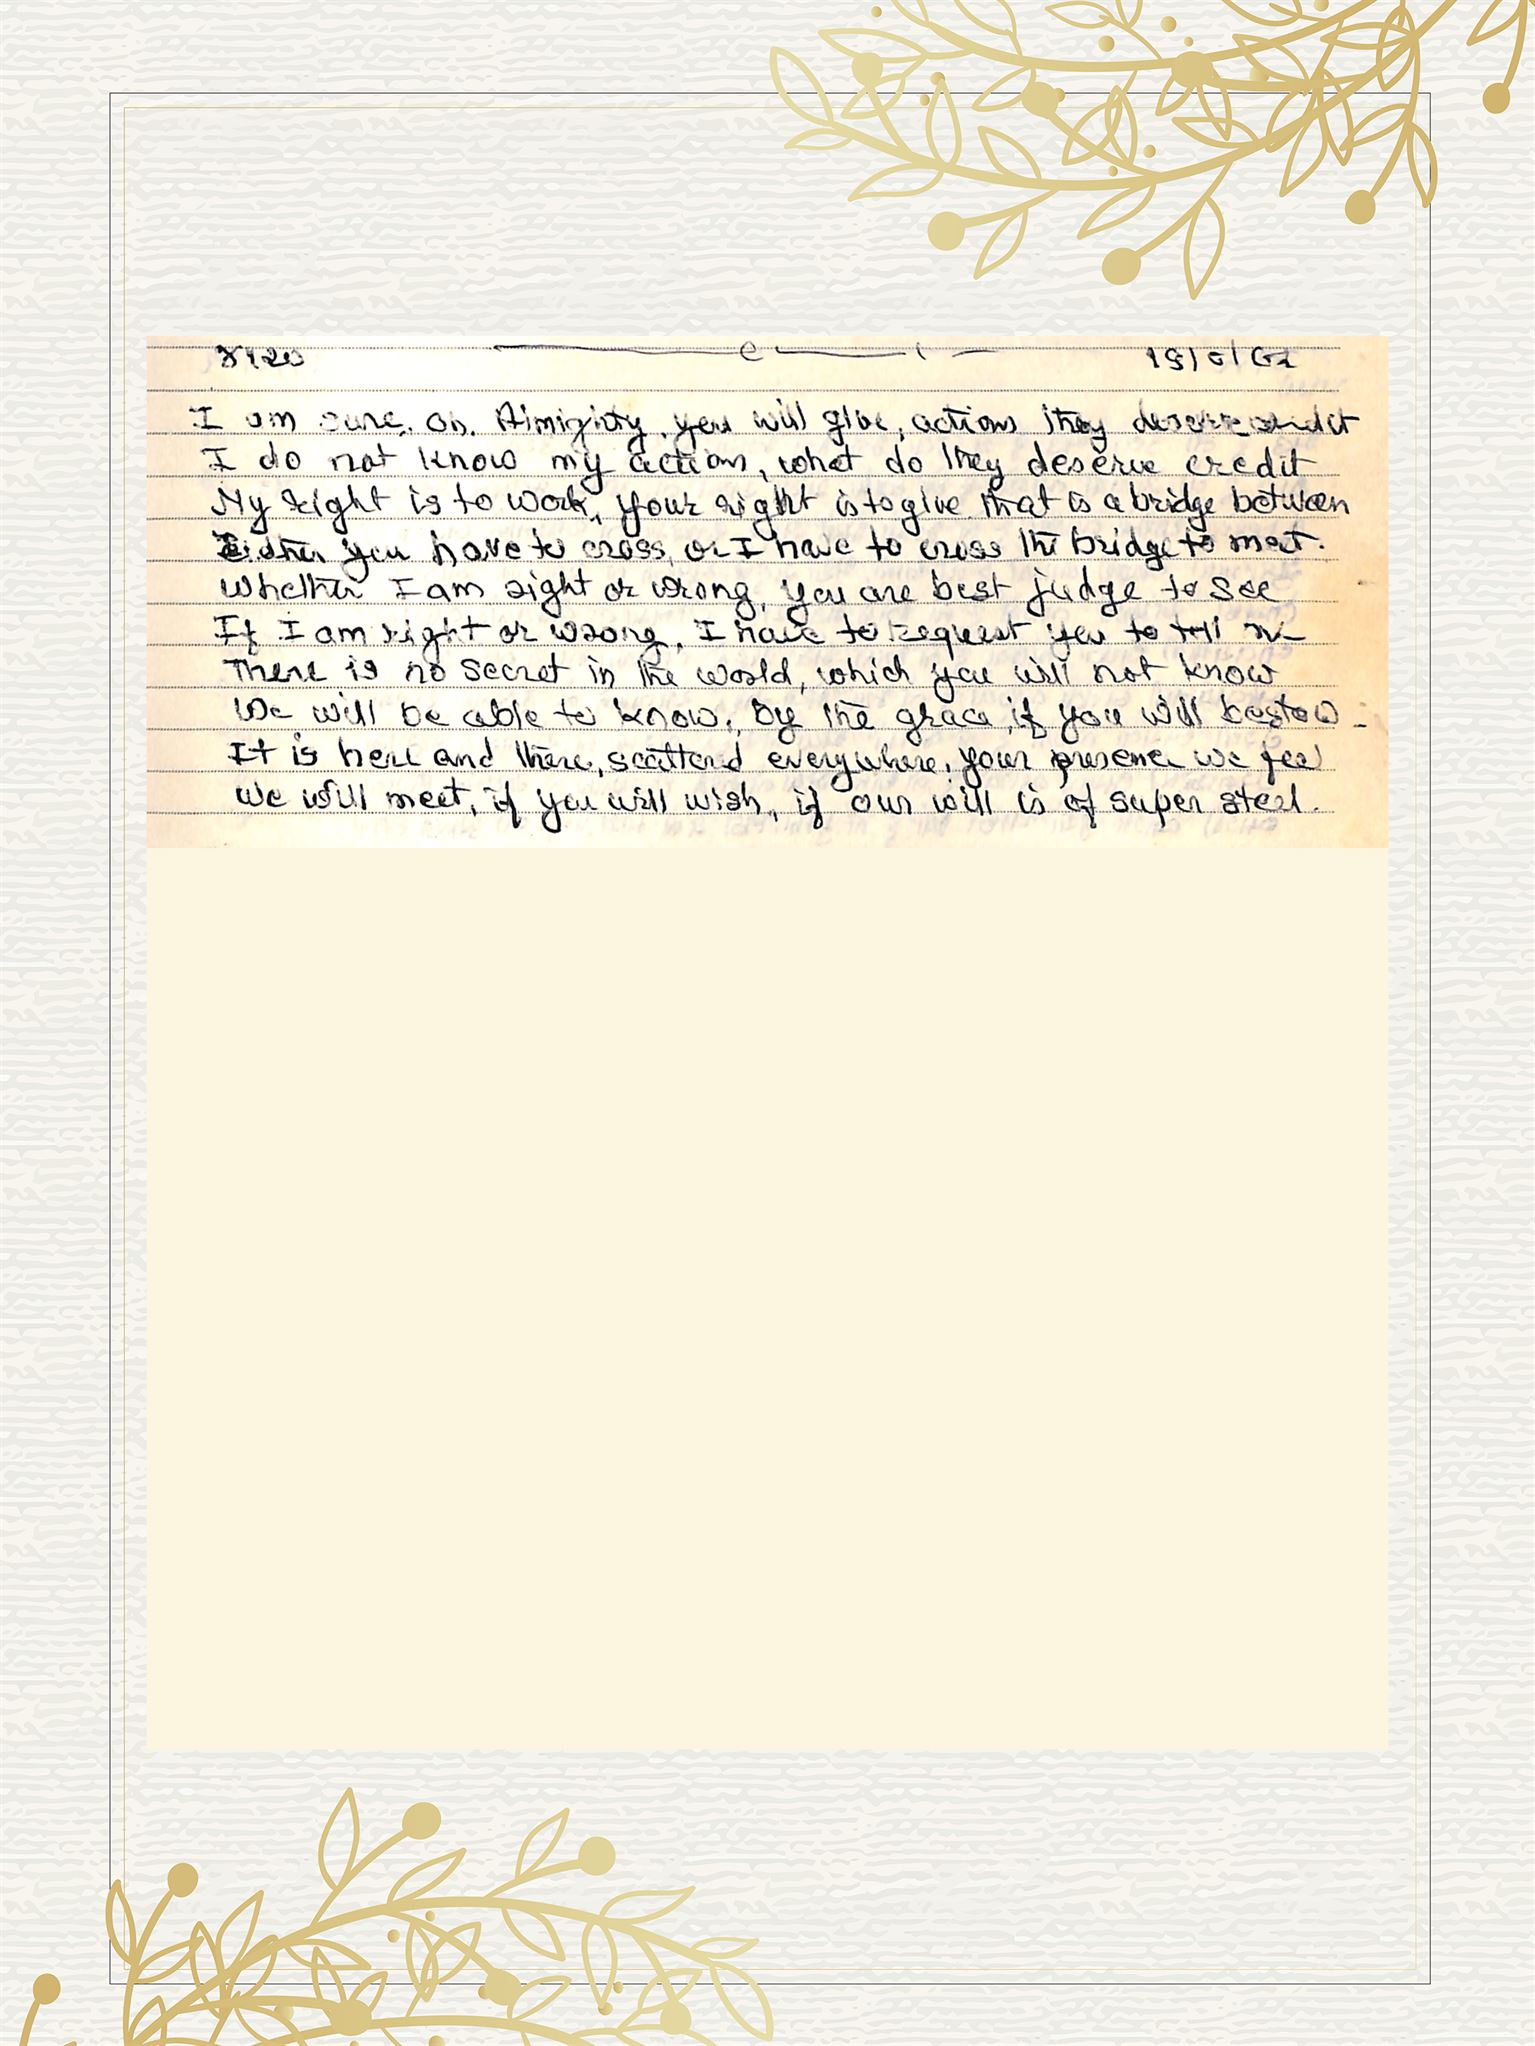 I am sure, oh. Almighty, you will give, actions they deserve credit
I do not know my action, what do they deserve credit
My right is to work, your right is to give that is a bridge between
Either you have to cross, or I have to cross the bridge to meet.
Whether I am right or wrong, you are best judge to see
If I am right or wrong, I have to request you to tell me
There is no secret in the world, which you will not know
We will be able to know, by the grace, if you will bestow
It is here and there, scattered everywhere, your presence we feel
We will meet, if you will wish, if our will is of super steel.